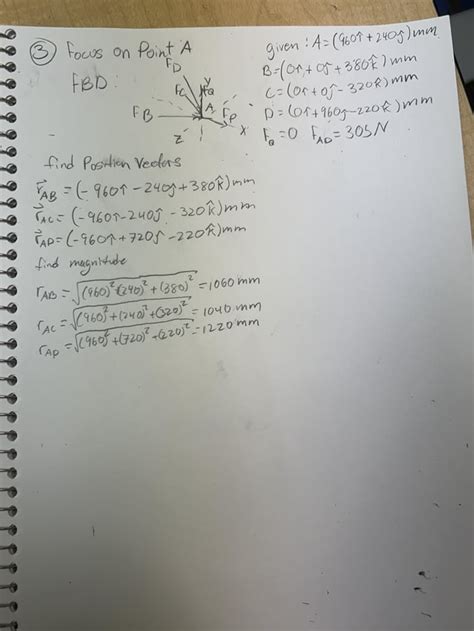 ③ Focus on Point A
FBD:
F_D
F_C
y
F_Q
A
F_B
F_P
x
z
given: A=(960î+240ĵ)mm
B=(0î+0ĵ+380k̂)mm
C=(0î+0ĵ-320k̂)mm
D=(0î+960ĵ-220k̂)mm
F_Q=0 F_AD=305N
find Position Vectors
r⃗_AB=(-960î-240ĵ+380k̂)mm
r⃗_AC=(-960î-240ĵ-320k̂)mm
r⃗_AD=(-960î+720ĵ-220k̂)mm
find magnitude
r_AB=√(960)²+(240)²+(380)²=1060mm
r_AC=√(960)²+(240)²+(320)²=1040mm
r_AD=√(960)²+(720)²+(220)²=1220mm